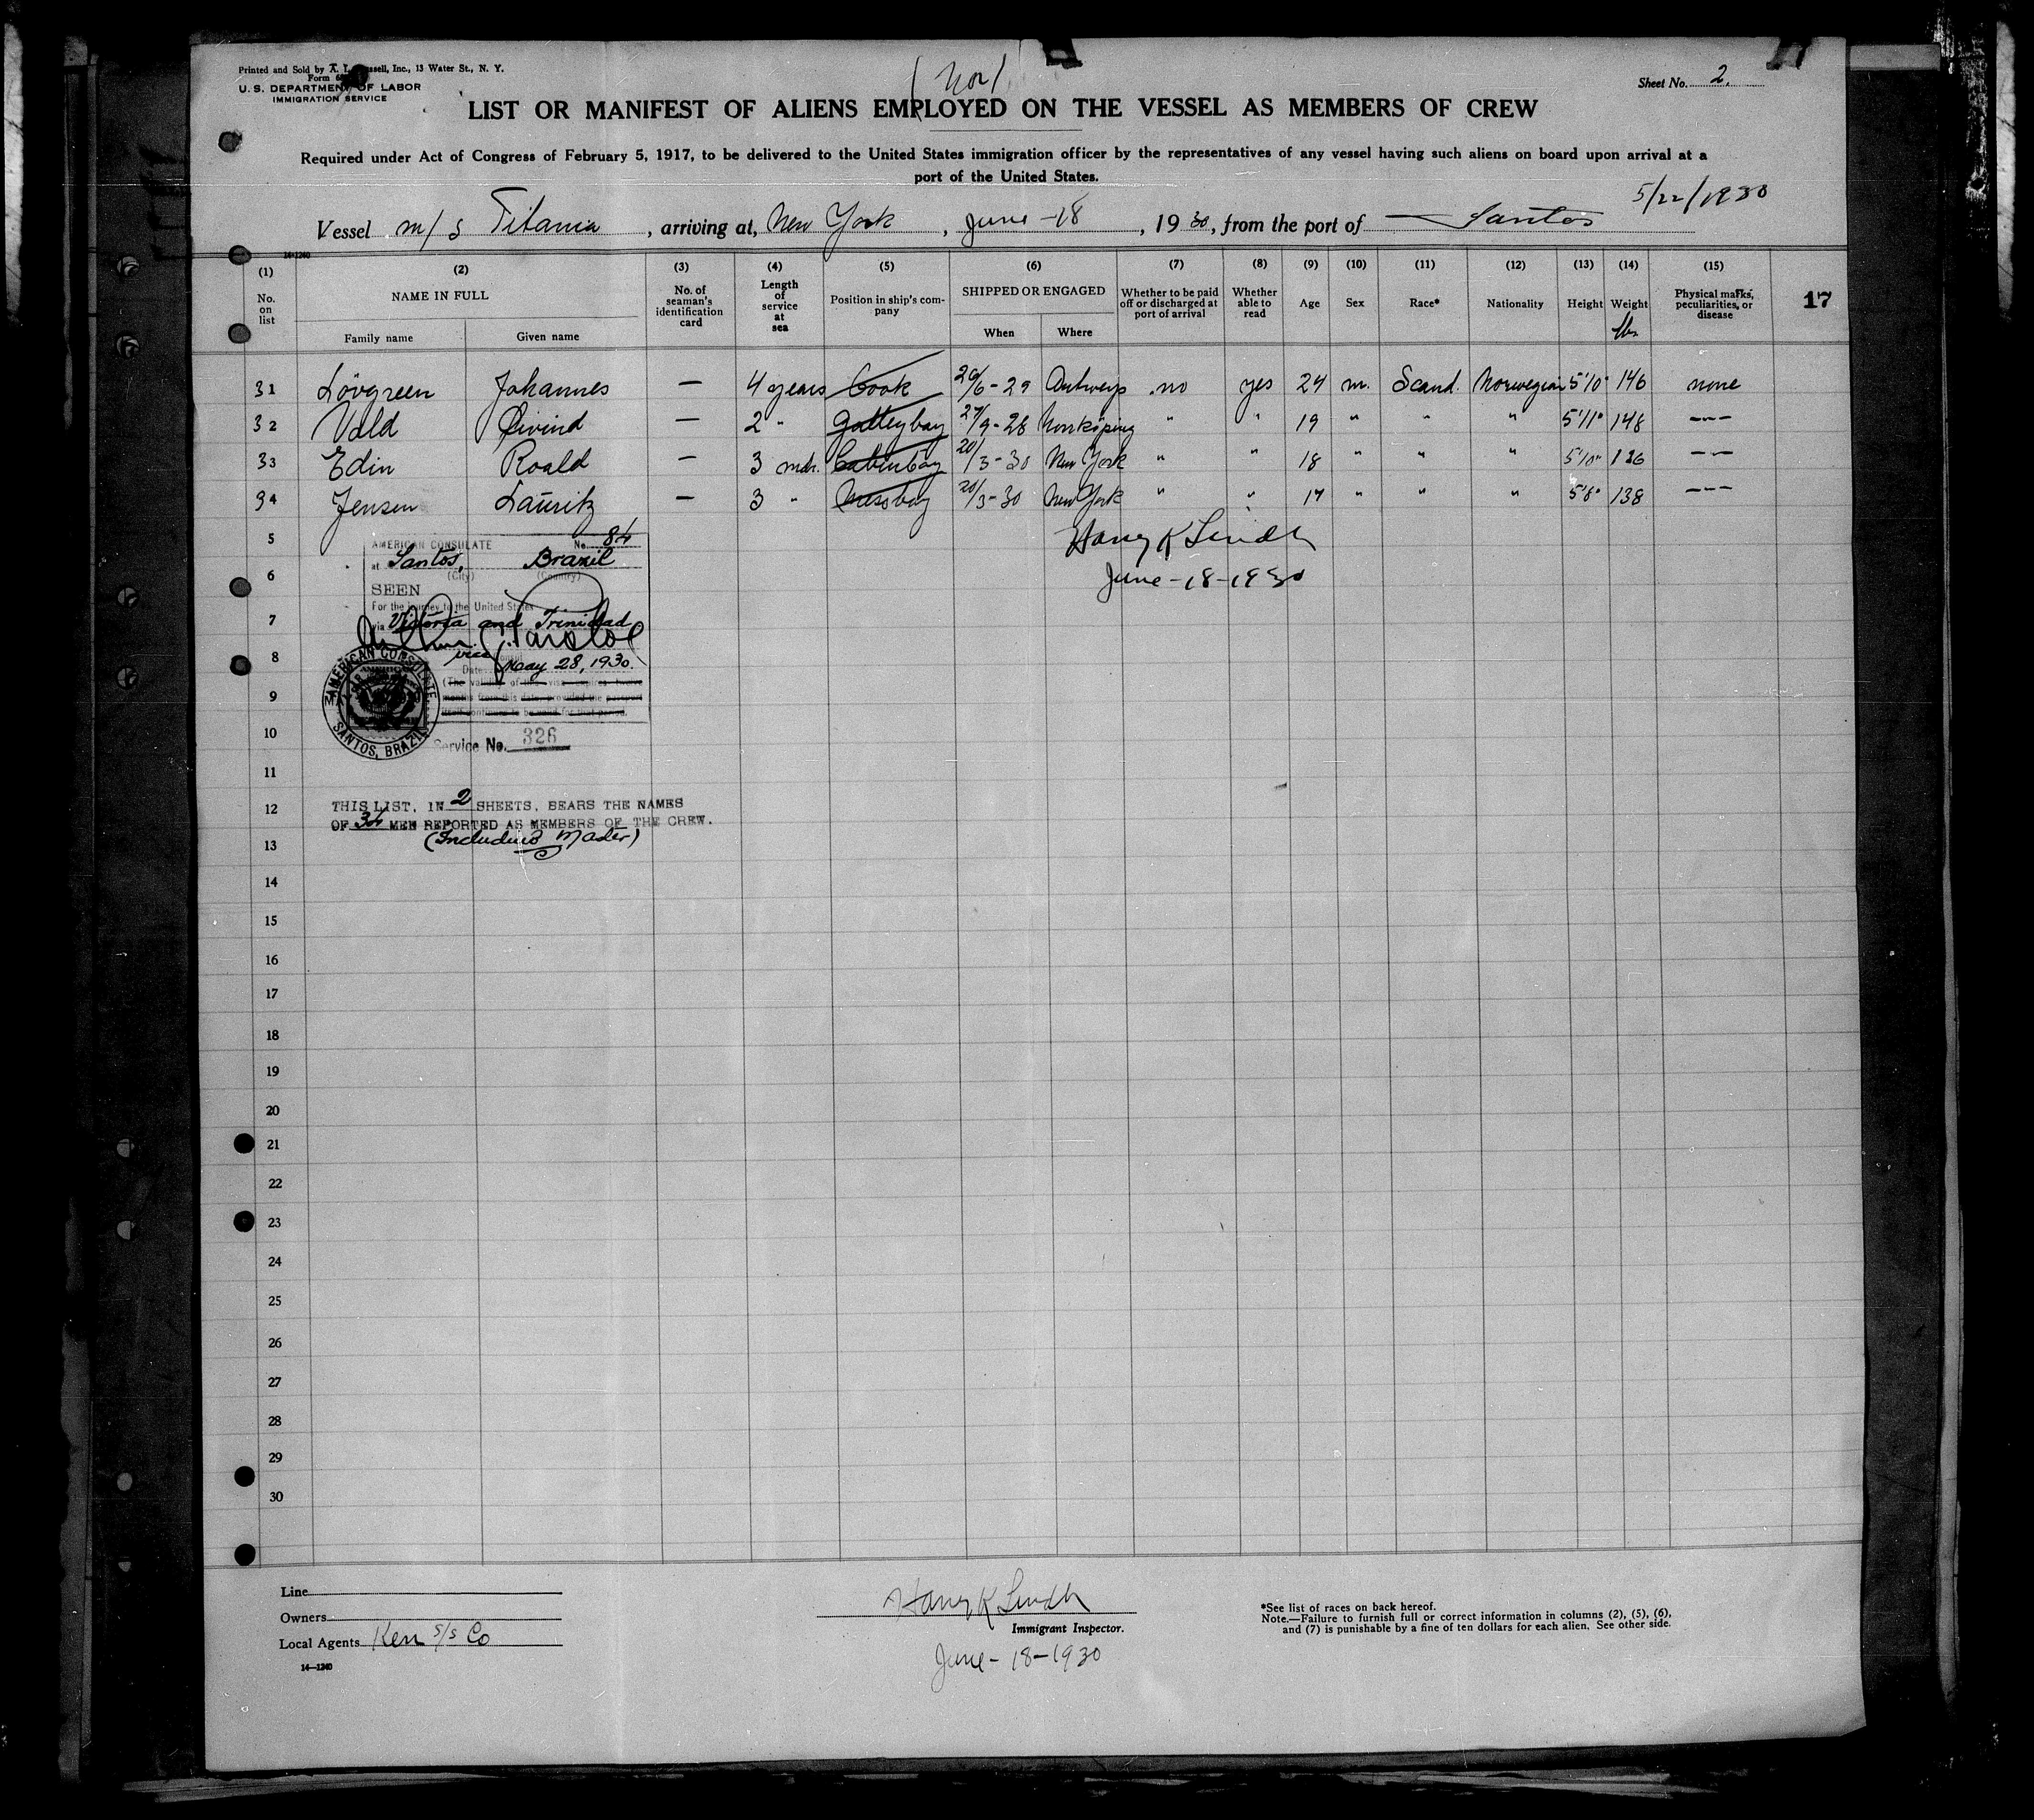 Printed and Sold by A. L. Russell, Inc., 13 Water St., N. Y.
Form
U. S. DEPARTMENT OF LABOR
IMMIGRATION SERVICE
(Nor)
Sheet No. 2.
LIST OR MANIFEST OF ALIENS EMPLOYED ON THE VESSEL AS MEMBERS OF CREW
Required under Act of Congress of February 5, 1917, to be delivered to the United States immigration officer by the representatives of any vessel having such aliens on board upon arrival at a
port of the United States.
5/22/1930
Vessel m/s Titania, arriving at, New York, June-18, 1930, from the port of Santos
14-1240
(1) (2) (3) (4) (5) (6) (7) (8) (9) (10) (11) (12) (13) (14) (15)
No. on list NAME IN FULL Family name Given name No. of seaman's identification card Length of service at sea Position in ship's company SHIPPED OR ENGAGED When Where Whether to be paid off or discharged at port of arrival Whether able to read Age Sex Race* Nationality Height Weight lbs Physical marks, peculiarities, or disease 17
31 Lövgreen Johannes — 4 years Cook 20/6-29 Antwerp no yes 24 m. Scand. Norwegian 5'10" 146 none
32 Vold Øivind — 2 " Galleyboy 27/9-28 Norrköping " " 19 " " " 5'11" 148 — — —
33 Edin Roald — 3 mdr. Cabinboy 20/3-30 New York " " 18 " " " 5'10" 136 — — —
34 Jensen Lauritz — 3 " Messboy 20/3-30 New York " " 17 " " " 5'8" 138 — — —
5
Harry K Lindh
June-18-1930
AMERICAN CONSULATE No. 84
at Santos, Brazil
(City) (Country)
6
SEEN
For the journey to the United States
7
via Victoria and Trinidad
8
vice
Date: May 28, 1930.
(The validity of this visa expires twelve
9
months from this date, provided the passport
itself continues to be valid for that period.
AMERICAN CONSULATE
SANTOS, BRAZIL
10
Service No. 326
11
12
THIS LIST, IN 2 SHEETS, BEARS THE NAMES
OF 34 MEN REPORTED AS MEMBERS OF THE CREW.
13
(Including Master)
14
15
16
17
18
19
20
21
22
23
24
25
26
27
28
29
30
Line
Owners
Local Agents Kerr S/S Co
14—1240
Harry K Lindh
Immigrant Inspector.
June-18-1930
*See list of races on back hereof.
Note.—Failure to furnish full or correct information in columns (2), (5), (6),
and (7) is punishable by a fine of ten dollars for each alien. See other side.